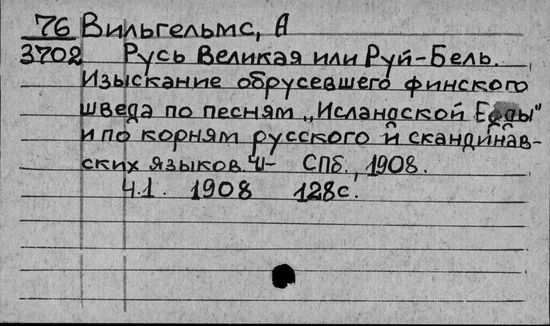 76 Вильгельмс, А
3702 Русь Великая или Руй-Бель.
Изыскание обрусевшего финского
шведа по песням „Исландской Едды"
и по корням русского и скандинав-
ских языков. Ч1- СПб., 1908.
Ч.1. 1908 128с.